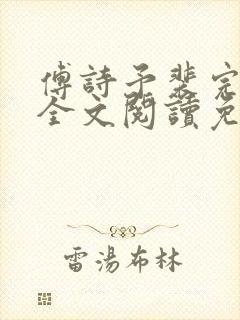 傅詩予裴完
全文閱讀免
雷湯布林